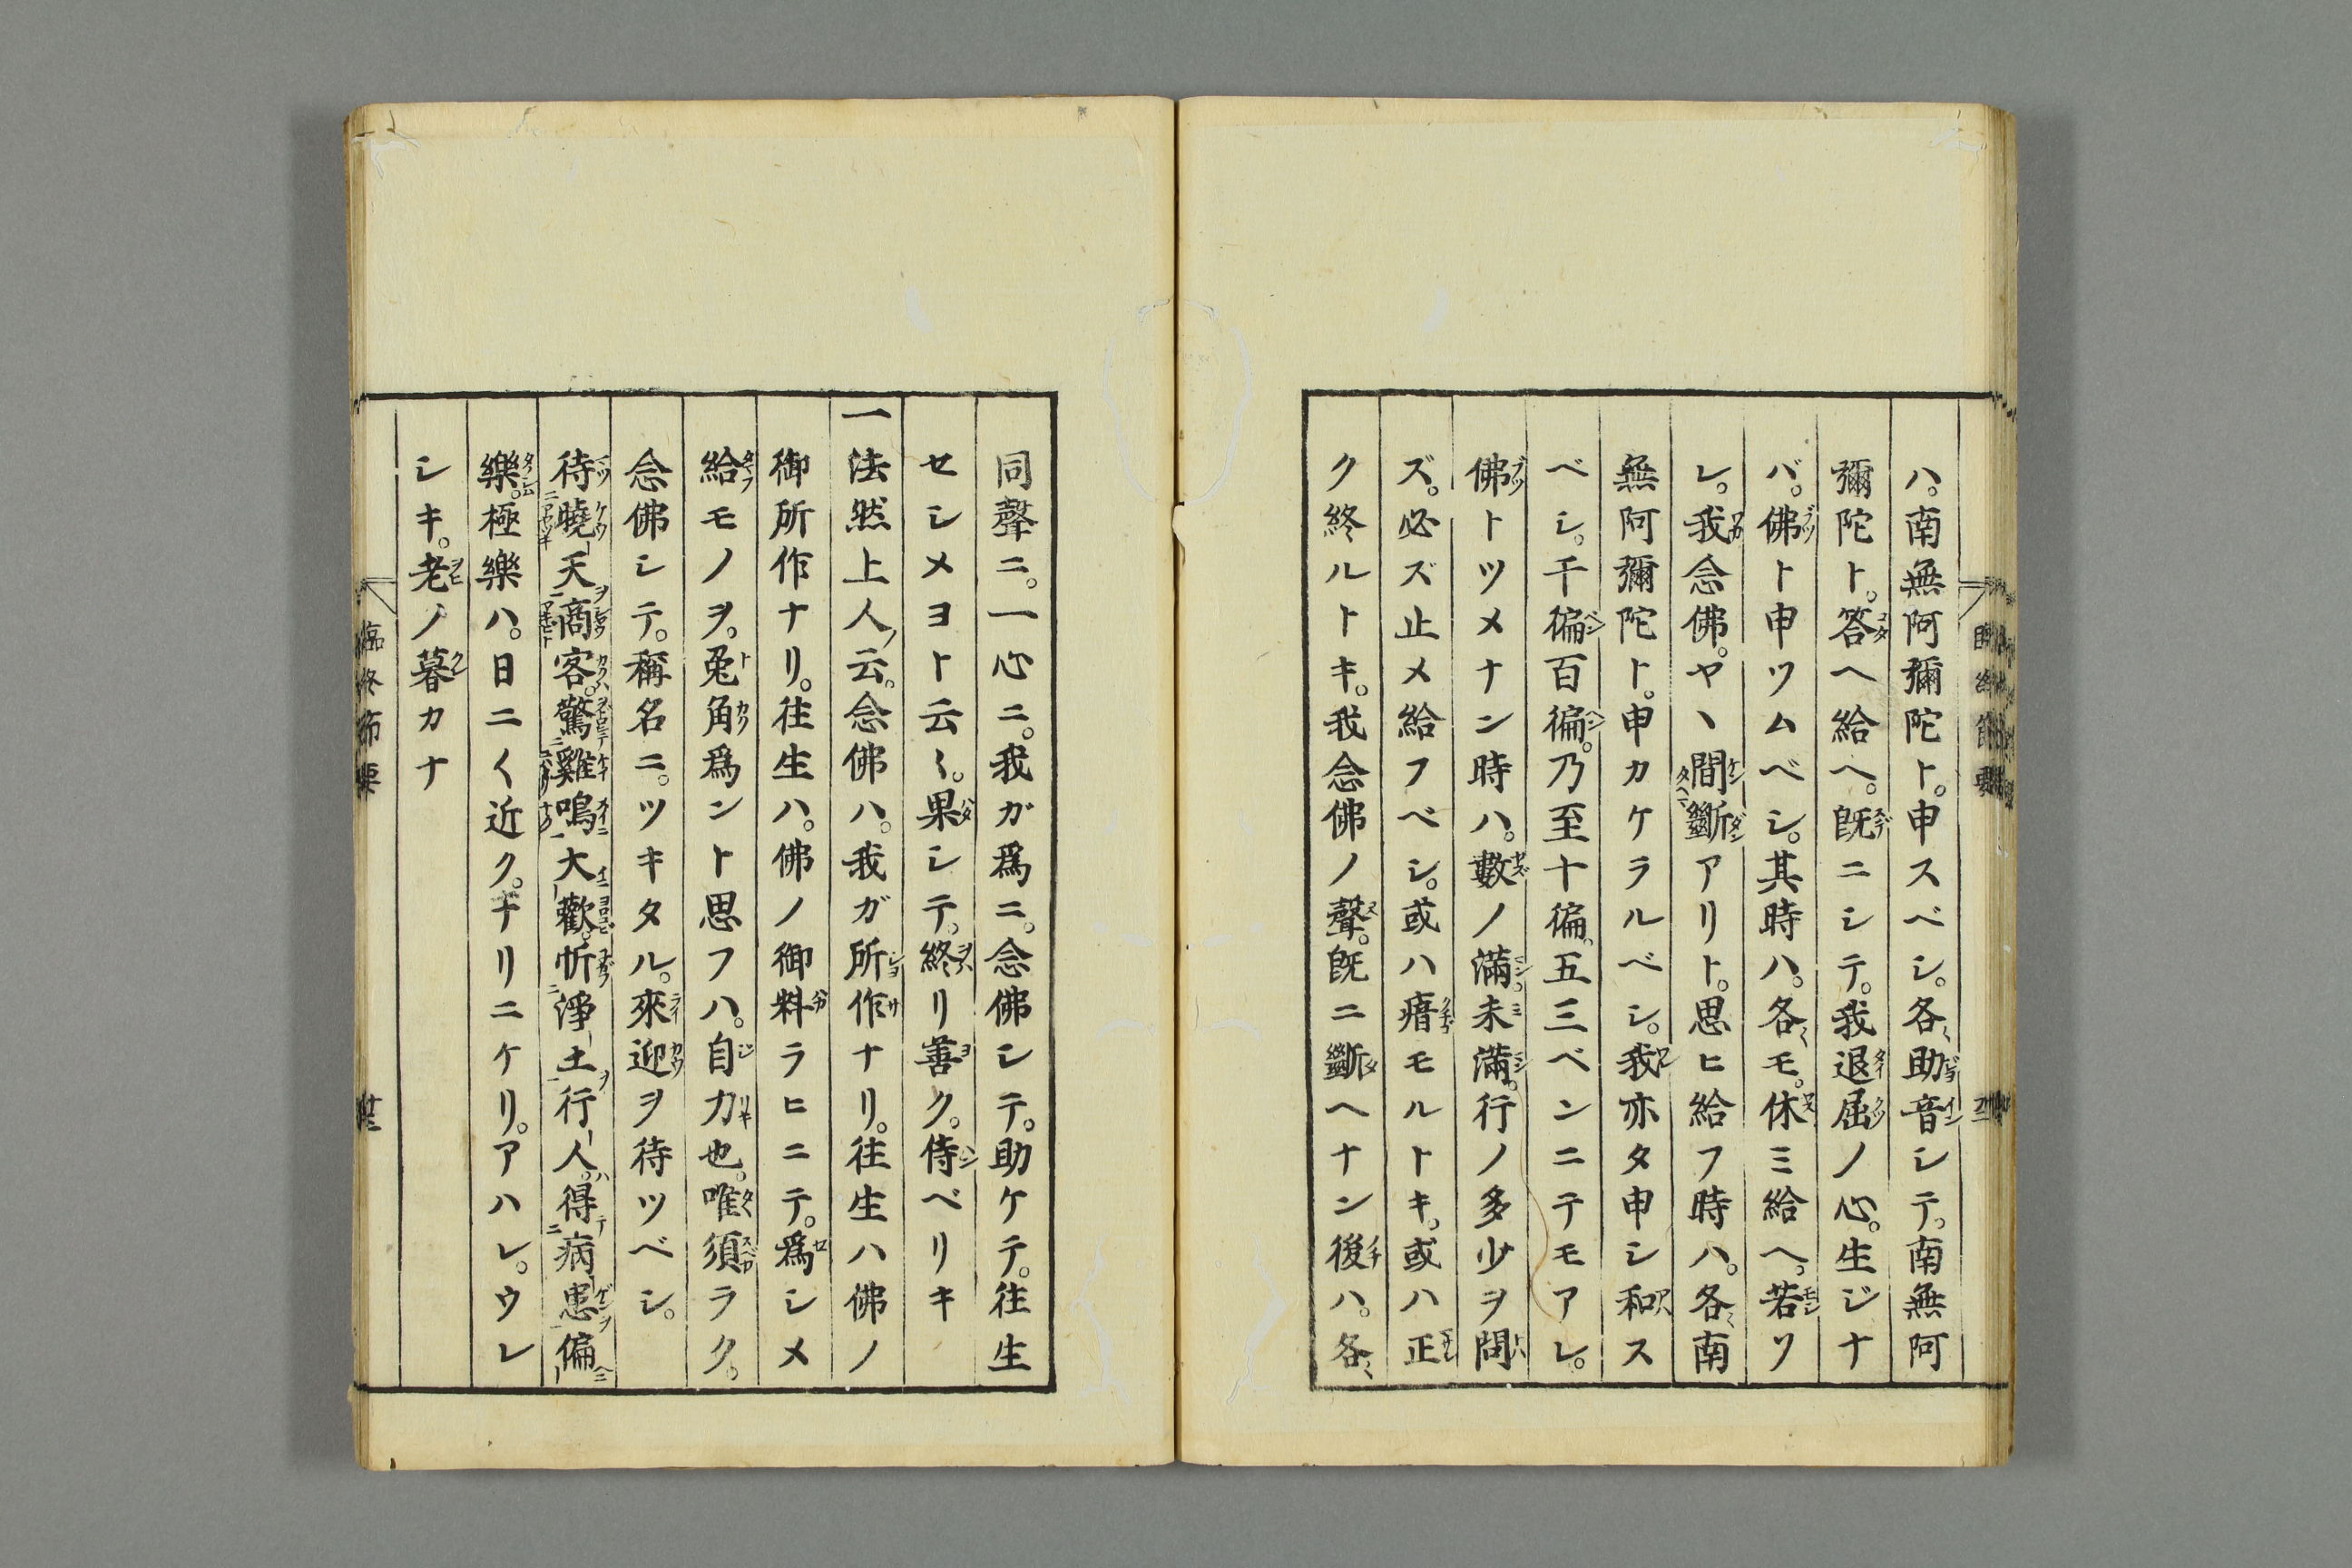 ハ。南無阿彌陀ト。申スベシ。各〱助音シテ。南無阿
彌陀ト。答ヘ給ヘ。既ニシテ。我退屈ノ心。生ジナ
バ。佛ト申ツムベシ。其時ハ。各〱モ。休ミ給ヘ。若ツ
レ。我念佛。ヤヽ間斷アリト。思ヒ給フ時ハ。各〱南
無阿彌陀ト。申カケラルベシ。我亦タ申シ和ス
ベシ。千徧百徧。乃至十徧。五三ベンニテモアレ。
佛トツメナン時ハ。數ノ滿。未滿。行ノ多少ヲ問
ズ。必ズ止メ給フベシ。或ハ瘖モルトキ。或ハ正
ク終ルトキ。我念佛ノ聲。既ニ斷ヘナン後ハ。各〱
同聲ニ。一心ニ。我ガ爲ニ。念佛シテ。助ケテ。往生
セシメヨト云〻。果シテ。終リ善ク。侍ベリキ
一法然上人ノ云。念佛ハ。我ガ所作ナリ。往生ハ佛ノ
御所作ナリ。往生ハ。佛ノ御料ラヒニテ。爲シメ
給モノヲ。兎角爲ント思フハ。自力也。唯須ラク。
念佛シテ。稱名ニ。ツキタル。來迎ヲ待ツベシ。
待曉天商客。驚雞鳴大歡。忻淨土行人。得病患偏
樂。極樂ハ。日ニ〱近ク。ナリニケリ。アハレ。ウレ
シキ。老ノ暮カナ
臨終節要